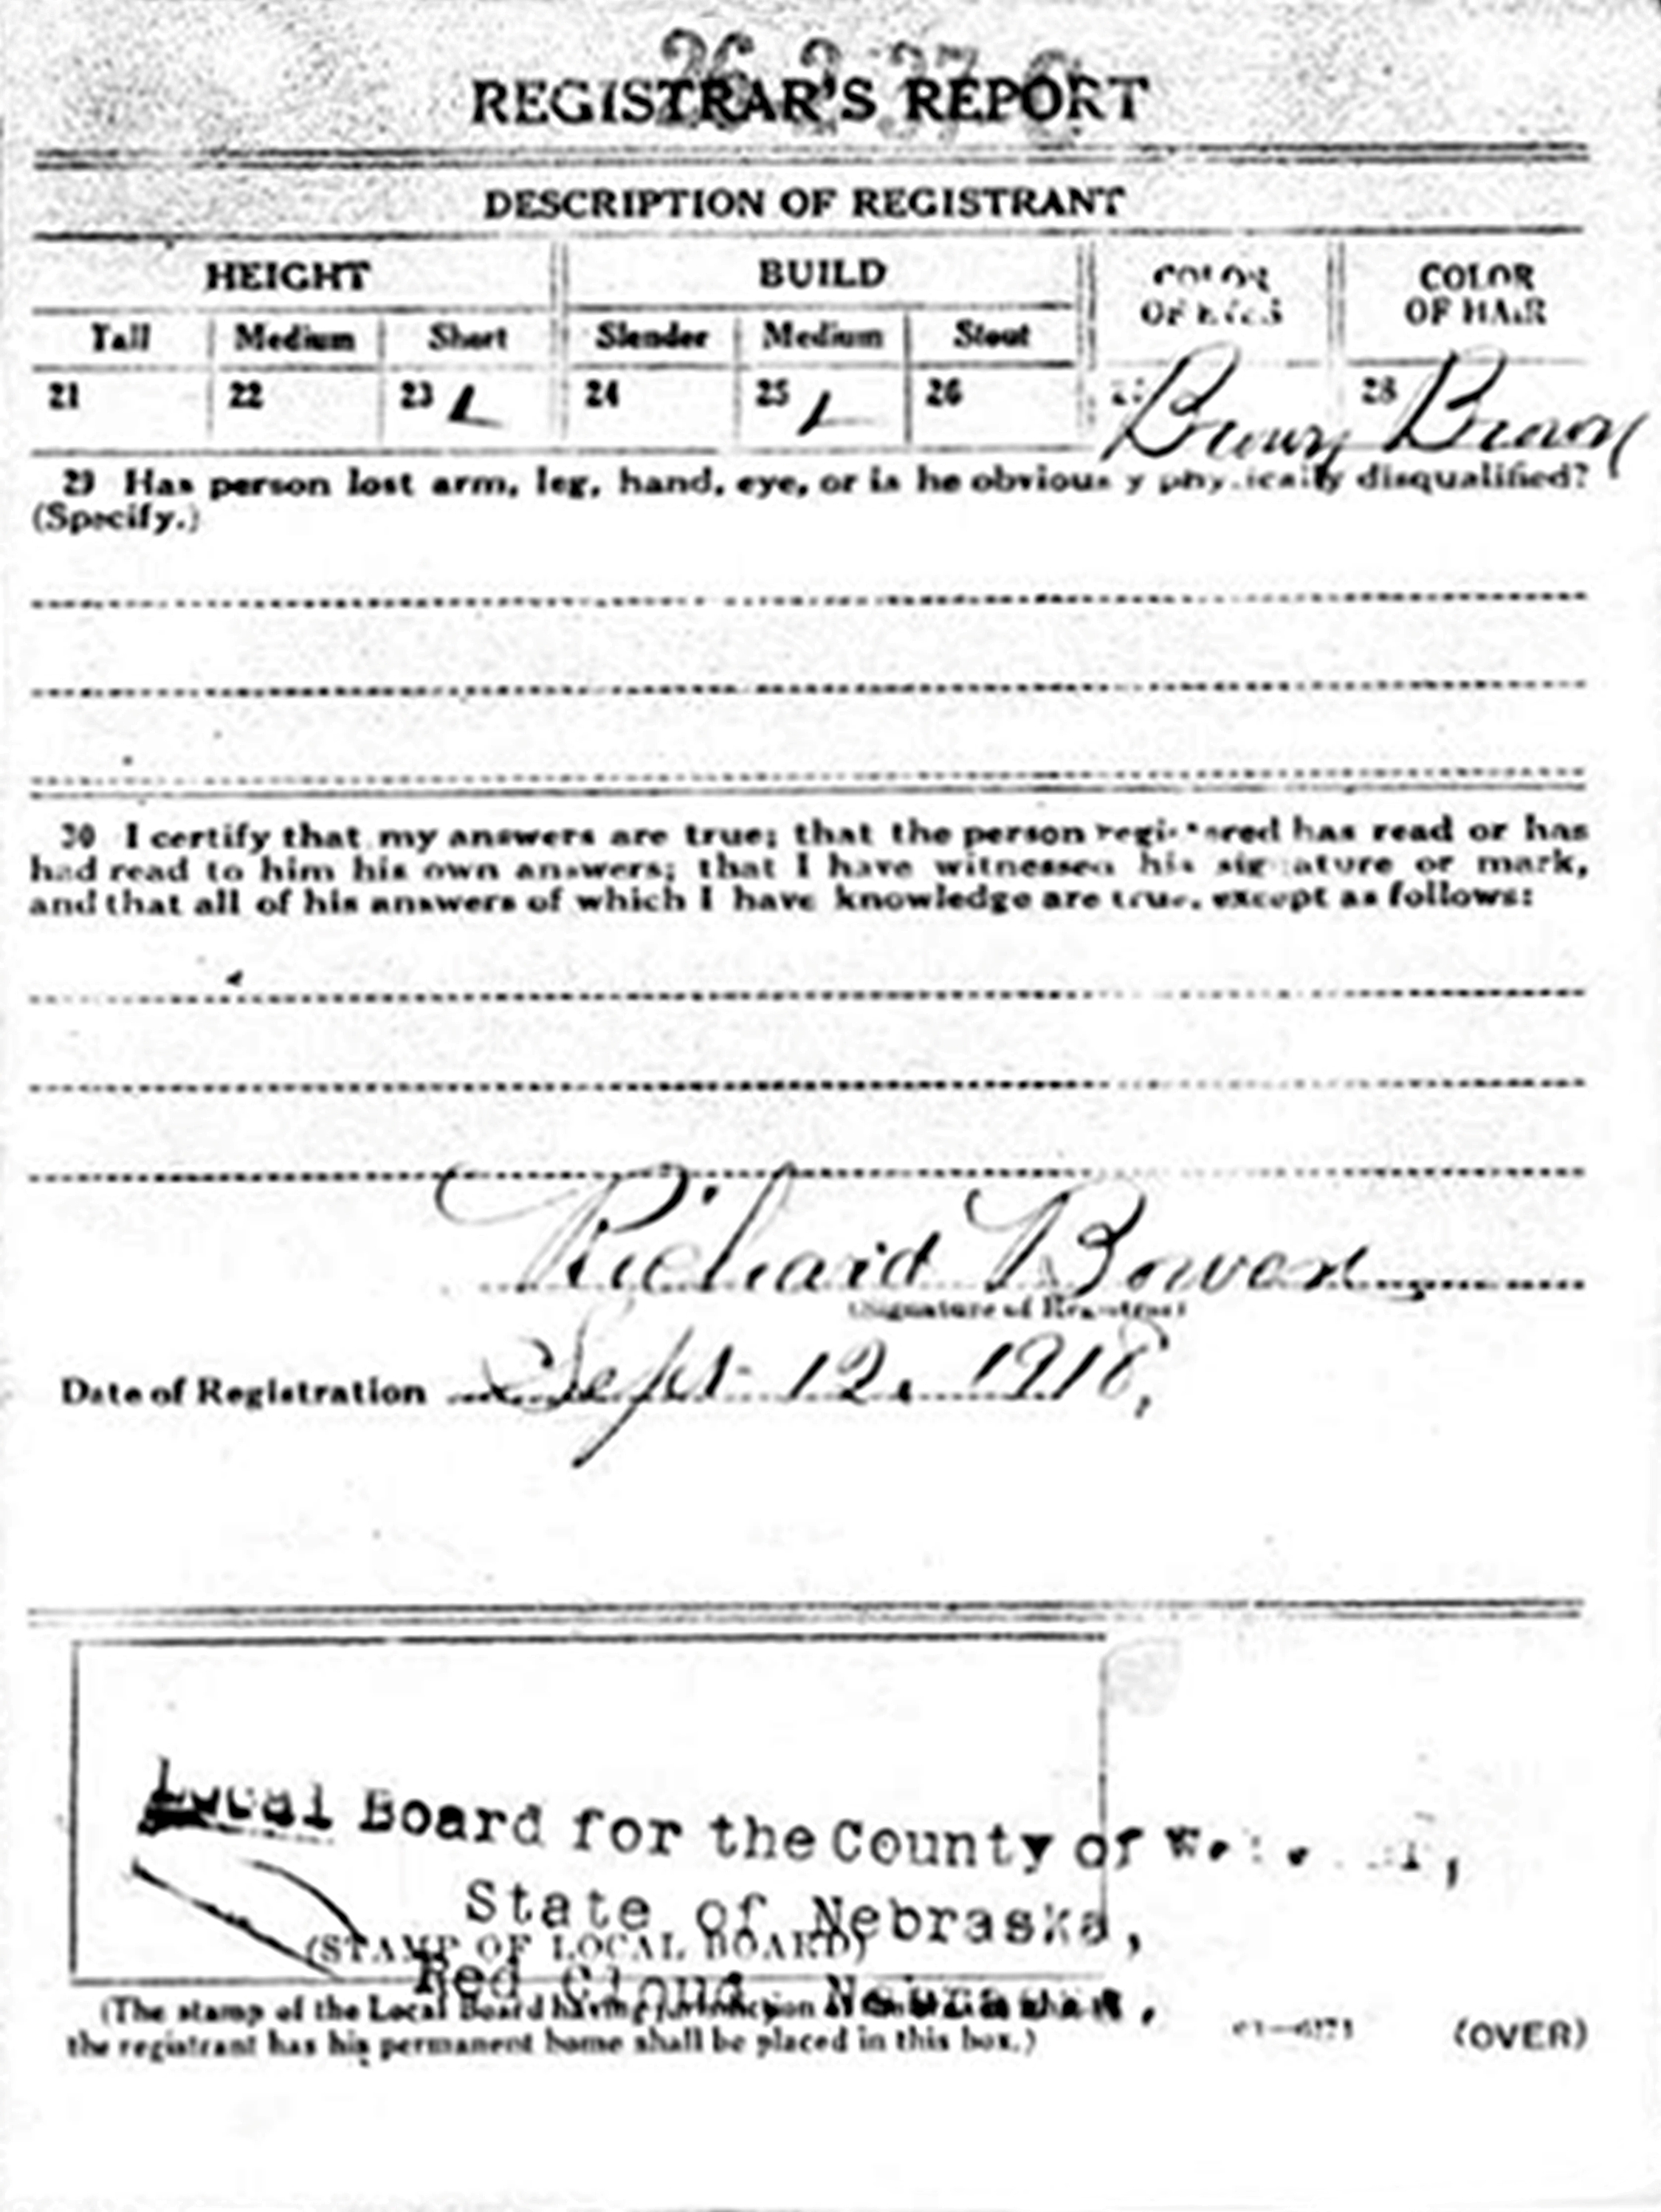 REGISTRAR'S REPORT
DESCRIPTION OF REGISTRANT
HEIGHT BUILD COLOR OF EYES COLOR OF HAIR
Tall Medium Short Slender Medium Stout
21 22 23 24 25 26 27 Brown 28 Brown
29 Has person lost arm, leg, hand, eye, or is he obviously physically disqualified?
(Specify.)
30 I certify that my answers are true; that the person registered has read or has
had read to him his own answers; that I have witnessed his signature or mark,
and that all of his answers of which I have knowledge are true, except as follows:
Richard Bowen
(Signature of Registrar)
Date of Registration Sept 12, 1918,
Local Board for the County of
State of Nebraska,
(STAMP OF LOCAL BOARD)
Red Cloud, Nebraska,
(The stamp of the Local Board having jurisdiction of the area in which
the registrant has his permanent home shall be placed in this box.)
(OVER)